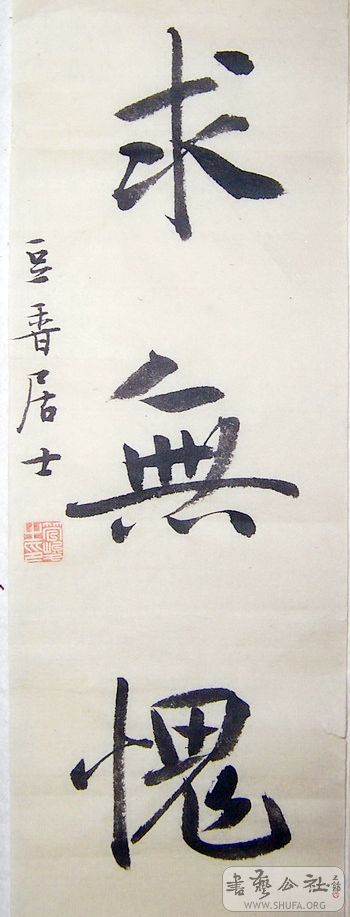 求無愧
豆香居士
書藝公社
WWW.SHUFA.ORG